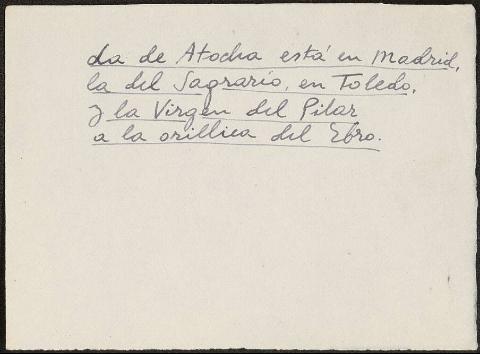 La de Atocha está en Madrid,
la del Sagrario, en Toledo,
y la Virgen del Pilar
a la orillica del Ebro.